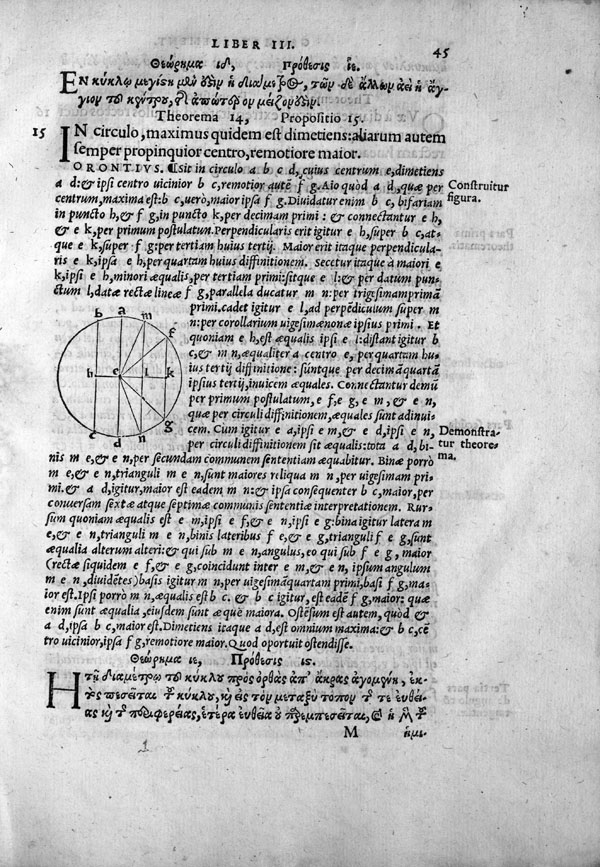 LIBER III.
45
Θεώρημα ιδ, Πρόθεσις ιε.
ΕΝ κύκλῳ μεγίςη μὲν ὅζιν ἡ διάμετρος, τῶν δὲ ἄλλων ἀεὶ ἡ ἔγ-
γιον τοῦ κέντρου, τῆς ἀπώτερον μείζων ὅζιν.
Theorema 14, Propositio 15.
15
IN circulo, maximus quidem est dimetiens: aliarum autem
semper propinquior centro, remotiore maior.
ORONTIVS. ¶Sit in circulo a b c d, cuius centrum e, dimetiens
a d: & ipsi centro uicinior b c, remotior autẽ f g. Aio quòd a d, quæ per
Construitur
centrum, maxima est: b c, uerò, maior ipsa f g. Diuidatur enim b c, bifariam
figura.
in puncto h, & f g, in puncto k, per decimam primi: & connectantur e h,
& e k, per primum postulatum. Perpendicularis erit igitur e h, super b c, at-
que e k, super f g: per tertiam huius tertij. Maior erit itaque perpendicula-
ris e k, ipsa e h, per quartam huius diffinitionem. Secetur itaque à maiori e
k, ipsi e h, minori æqualis, per tertiam primi: sitque e l: & per datum pun-
ctum l, datæ rectæ lineæ f g, parallela ducatur m n: per trigesimamprimã
primi. cadet igitur e l, ad perpẽdiculum super m
n: per corollarium uigesimænonæ ipsius primi. Et
quoniam e h, est æqualis ipsi e l: distant igitur b
c, & m n, æqualiter a centro e, per quartam hu-
ius tertij diffinitione: suntque per decimãquartã
ipsius tertij, inuicem æquales. Connectantur demũ
per primum postulatum, e f, e g, e m, & e n,
quæ per circuli diffinitionem, æquales sunt adinui-
cem. Cum igitur e a, ipsi e m, & e d, ipsi e n,
Demonstra-
per circuli diffinitionem sit æqualis: tota a d, bi-
tur theore-
nis m e, & e n, per secundam communem sententiam æquabitur. Binæ porrò
ma.
m e, & e n, trianguli m e n, sunt maiores reliqua m n, per uigesimam pri-
mi. & a d, igitur, maior est eadem m n: & ipsa consequenter b c, maior, per
conuersam sextæ atque septimæ communis sententiæ interpretationem. Rur-
sum quoniam æqualis est e m, ipsi e f, & e n, ipsi e g: bina igitur latera m
e, & e n, trianguli m e n, binis lateribus f e, & e g, trianguli f e g, sunt
æqualia alterum alteri: & qui sub m e n, angulus, eo qui sub f e g, maior
(rectæ siquidem e f, & e g, coincidunt inter e m, & e n, ipsum angulum
m e n, diuidẽtes) basis igitur m n, per uigesimãquartam primi, basi f g, ma-
ior est. Ipsi porrò m n, æqualis est b c. & b c igitur, est eadẽ f g, maior: quæ
enim sunt æqualia, eiusdem sunt æquè maiora. Ostẽsum est autem, quòd &
a d, ipsa b c, maior est. Dimetiens itaque a d, est omnium maxima: & b c, cẽ-
tro uicinior, ipsa f g, remotiore maior. Quod oportuit ostendisse.
b a m
f
h e l k
g
c d n
Θεώρημα ιε, Πρόθεσις ις.
Ἡ τῇ διαμέτρῳ τοῦ κύκλου πρὸς ὀρθὰς ἀπ᾽ ἄκρας ἀγομένη, ἐκ-
τὸς πεσεῖται τοῦ κύκλου, καὶ εἰς τὸν μεταξὺ τόπον τῆς τε ἐυθεί-
ας καὶ τῆς περιφερείας, ἑτέρα ἐυθεῖα οὐ παρεμπεσεῖται, καὶ ἡ μὲν τοῦ
M ἡμι-
1